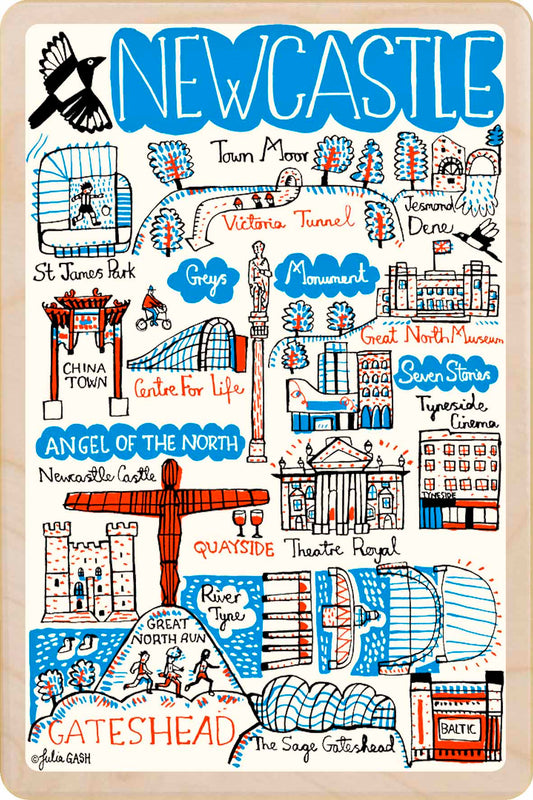 NEWCASTLE
Town Moor
Victoria Tunnel
Jesmond
Dene
St James Park
Greys Monument
Great North Museum
CHINA
TOWN
Centre For Life
Seven Stories
Tyneside
Cinema
ANGEL OF THE NORTH
Newcastle Castle
TYNESIDE
QUAYSIDE
Theatre Royal
River
Tyne
GREAT
NORTH RUN
GATESHEAD
The Sage Gateshead
BALTIC
©Julia GASH